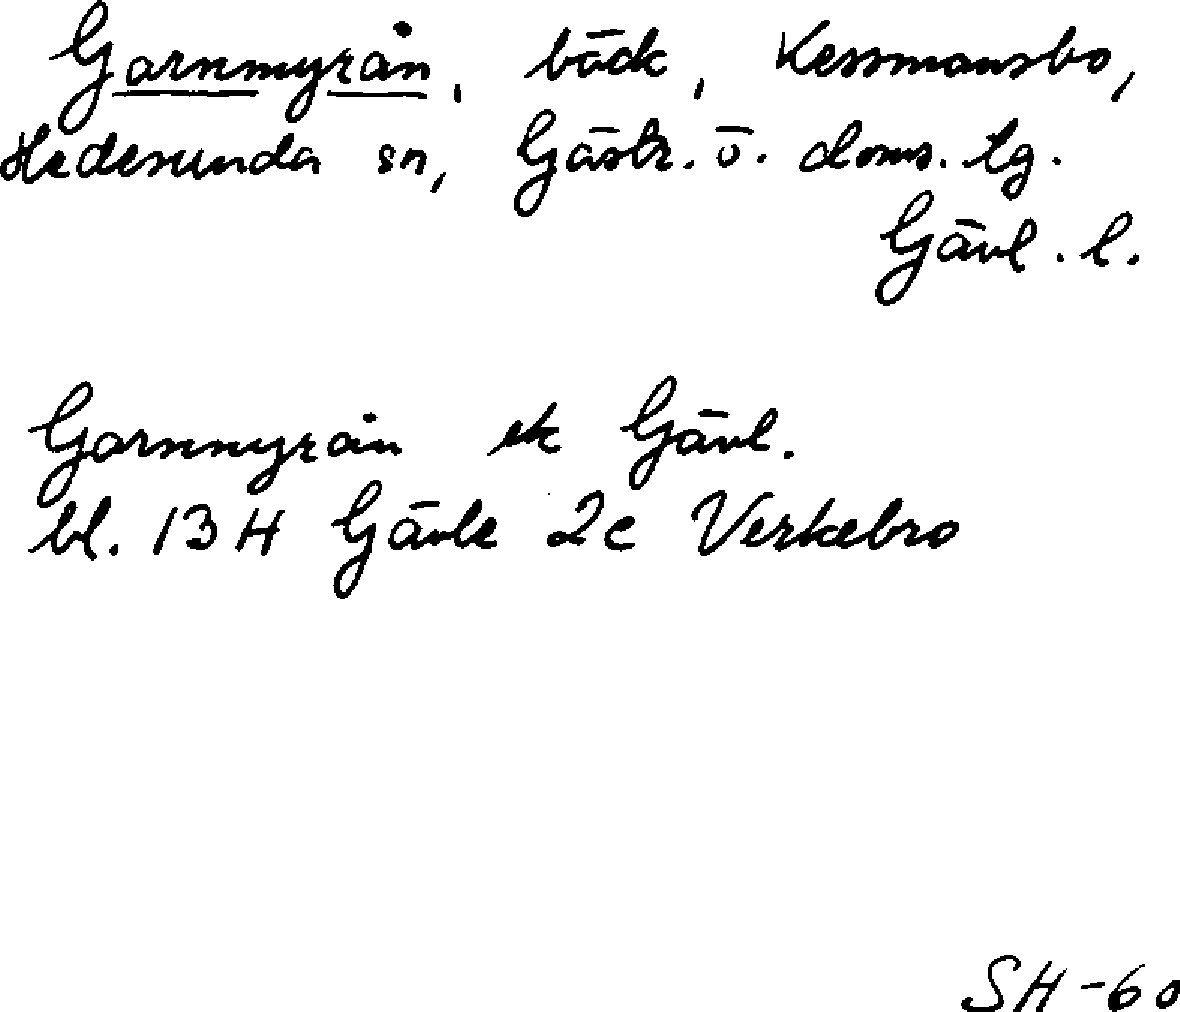 Garnmyrån, bäck, Kessmansbo,
Hedesunda sn, Gästr. ö. doms. tg.
Gävl. l.
Garnmyrån ek Gävl.
bl. 13 H Gävle 2c Verkebro
SH-60